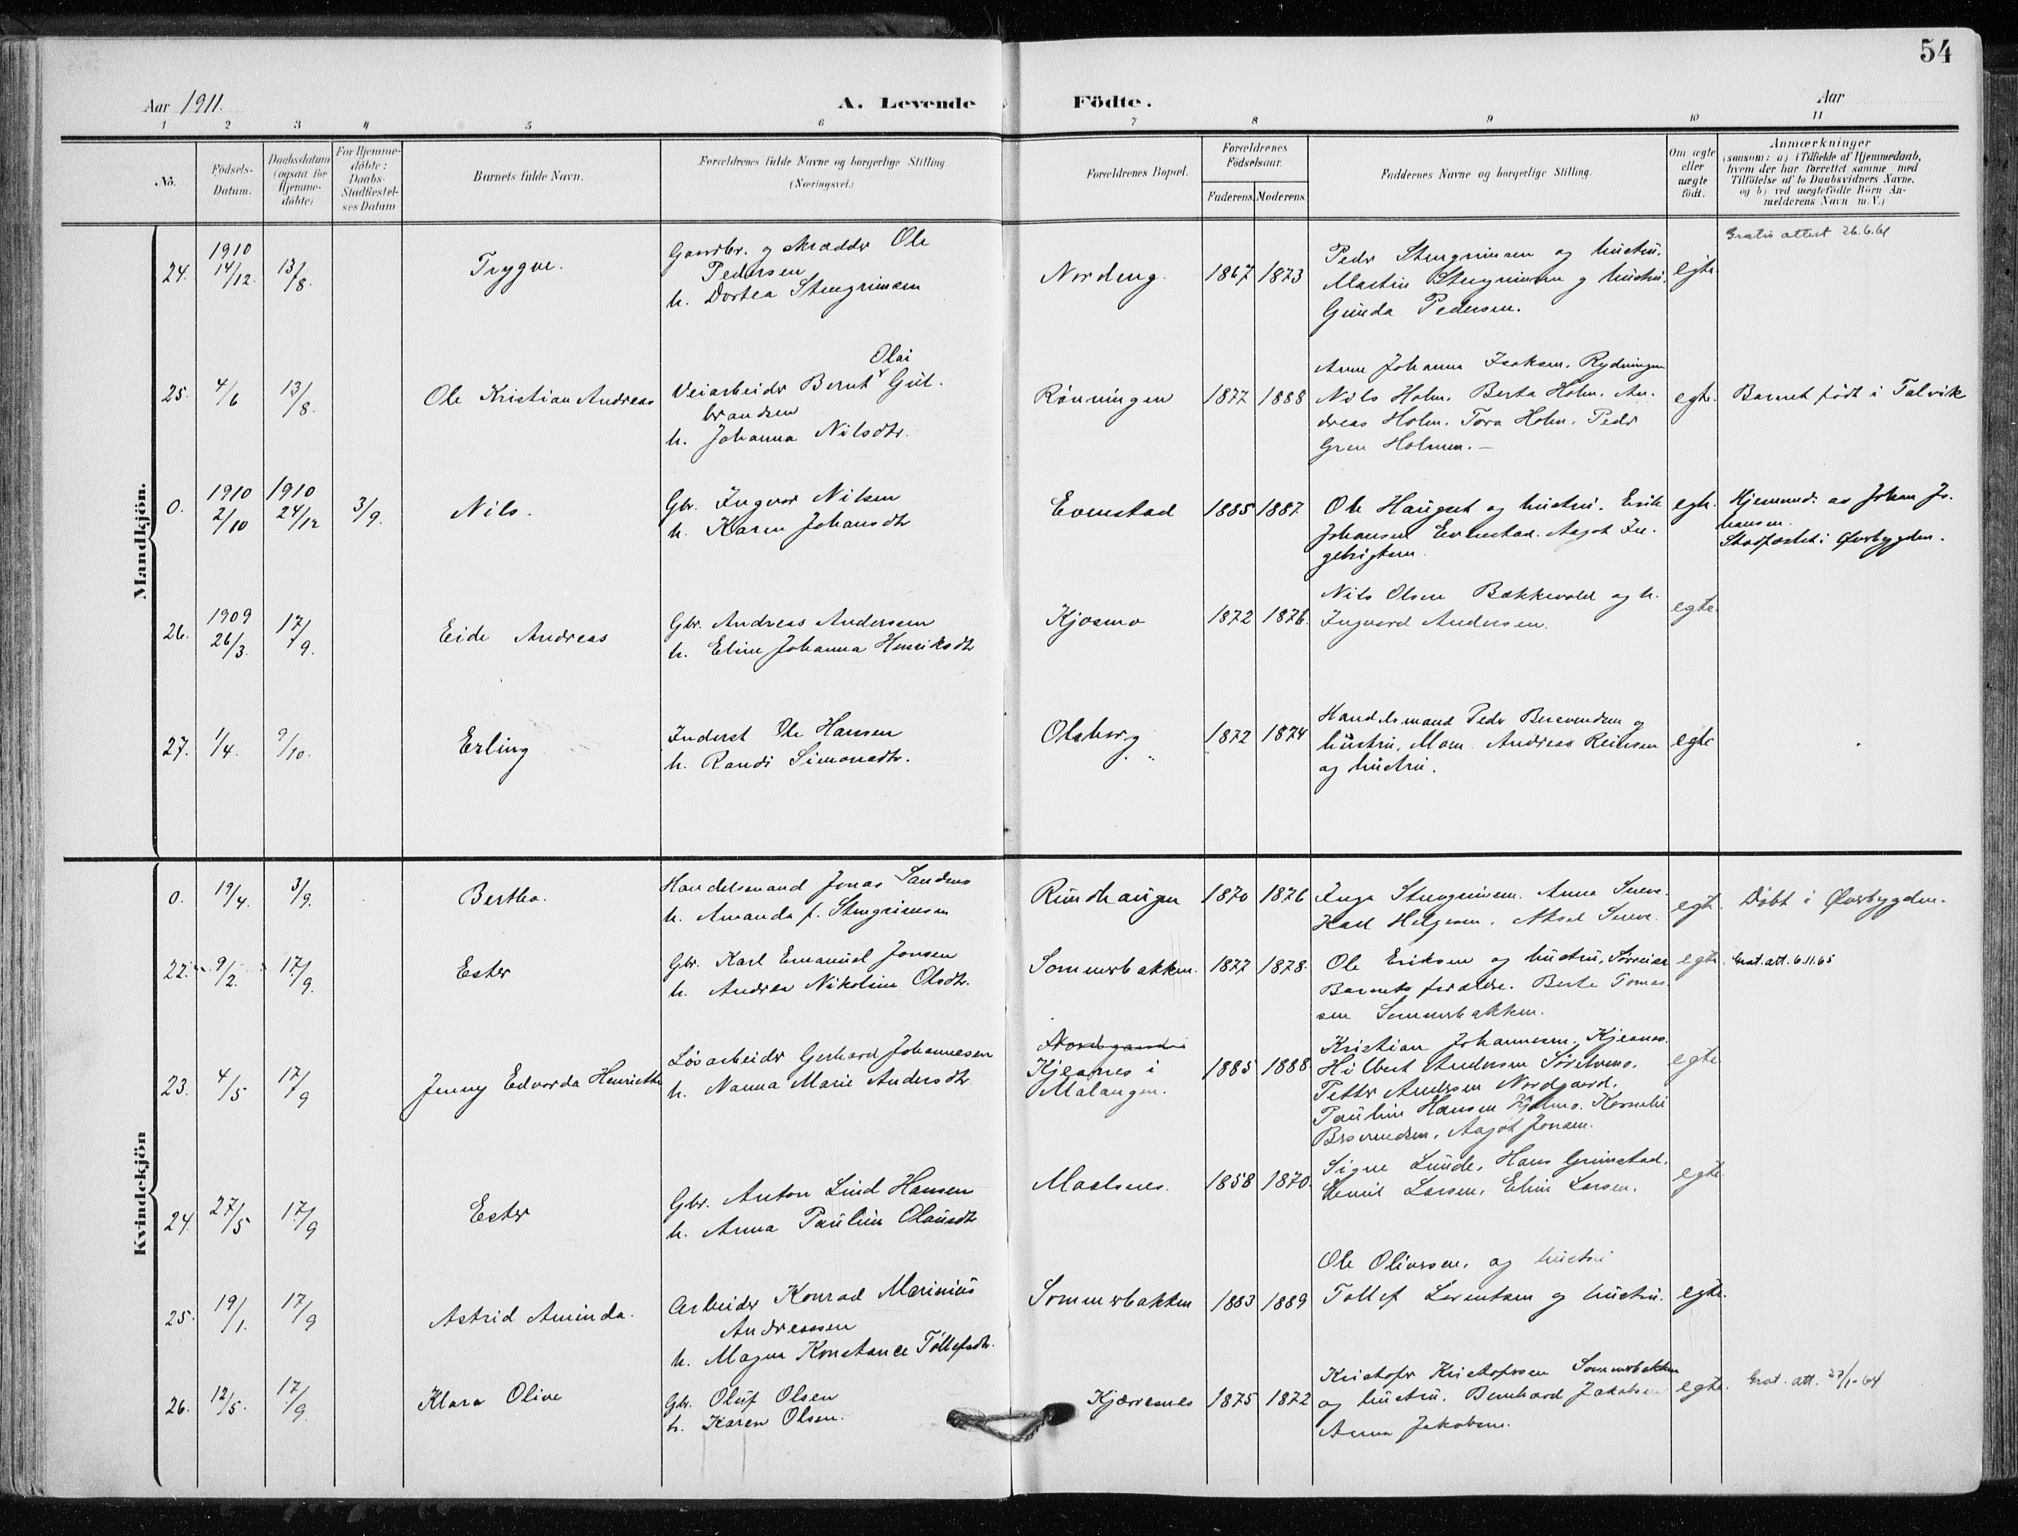 54
Aar 1911. A. Levende Födte. Aar
1 2 3 4 5 6 7 8 9 10 11
No. Födsels-Datum. Daabsdatum (ogsaa for Hjemme-döbte) For Hjemme-döbte: Daabs-Stadfæstel-ses Datum Barnets fulde Navn. Forældrenes fulde Navne og borgerlige Stilling (Næringsvei.) Forældrenes Bopæl. Forældrenes Födselsaar. Faderens Moderens Faddernes Navne og borgerlige Stilling. Om ægte eller uægte født. Anmærkninger (saasom: a) i Tilfælde af Hjemmedaab, hvem der har forrettet samme, med Tilföielse af to Daabsvidners Navne, og b) ved uægtefödte Börn Anmelderens Navn m. V.)
Mandkjön.
24. 1910 14/12. 13/8. Trygve. Gaardbr. og skrædder Ole
Pedersen
h. Dortea Stengrimsen
Nordeng. 1867 1873 Peder Stengrimsen og hustru.
Martin Stengrimsen og hustru.
Gunda Pedersen.
egte Gratis attest 26.6.61
25. 4/6 13/8. Ole Kristian Andreas Veiarbeider Bernt Olai Gul-
brandsen
h. Johanna Nilsdtr.
Rønningen 1877 1888 Anne Johanna Isaksen, Rydningen
Nils Holm. Berta Holm. An-
dreas Holm. Tora Holm. Peder
Gren Holmen. —
egte. Barnet født i Talvik
0. 1910 2/10 1910 24/12 3/9. Nils. Gbr. Ingvar Nilsen
h. Karen Johansdtr
Evenstad 1885 1887 Ole Hauget og hustru. Erik
Johansen Evenstad. Aagot In-
gebrigtsen.
egte. Hjemmed: av Johan Jo-
hansen.
Stadfæstet i Øverbygden.
26. 1909 26/3. 17/9. Eide Andreas Gbr. Andreas Anderssen
h. Eline Johanna Henriksdtr
Kjosmo 1872 1876. Nils Olsen Bakkevold og h.
Ingvard Andersen.
egte.
27. 1/4. 9/10. Erling Inderst Ole Hansen
h. Randi Simonsdtr.
Olsborg 1872 1874 Handelsmand Peder Bersvendsen og
hustru, Mom. Andreas Reiersen
og hustru.
egte
Kvindekjön
0. 19/4. 3/9. Bertha. Handelsmand Jonas Sandens
h. Amanda f. Stengrimsen
Rundhaugen 1870 1876 Inga Stengrimsen. Anna
Karl Helgesen. Aksel
egte. Døbt i Øverbygden.
22. 9/2. 17/9. Ester Gbr. Karl Emanuel Jonsen
h. Andrea Nikoline Olsdtr.
Sommerbakken. 1877 1878. Ole Eriksen og hustru, Sørreisa
Barnets forældre. Berte Tomas-
sen Sommerbakken.
egte. Grat. att. 6.11.65
23. 4/5 17/9 Jenny Edvarda Henriette Løsarbeider Gerhard Johannesen
h. Nanna Marie Andersdtr.
Nordgaard i
Kjesnes i
Malangen.
1885 1888 Kristian Johannesen, Kjesnes.
Hilbert Andersen
Petter Andersen Nordgaard.
Pauline Hansen Kjelmo. Kornelie
Bersvendsen, Aagot Jonsen.
egte.
24. 27/5 17/9 Ester Gbr. Anton Lind Hansen
h. Anna Pauline Olausdtr
Maalsnes. 1858 1870. Signe Lunde, Hans Grimstad,
Emil Larsen, Eline Larsen.
egte.
25. 19/1. 17/9 Astrid Aminda. Arbeider Konrad Marinius
Andreassen
h. Magna Konstance Tollefsdtr.
Sommerbakken 1883 1889 Ole Oliversen, og hustru
Tollef Lorentsen og hustru.
egte.
26. 12/5. 17/9 Klara Olive Gbr. Oluf Olsen
h. Karen Olsen.
Kjærresnes 1875 1872 Kristofer Kristofersen Sommerbakken
og hustru. Bernhard Jakobsen
Anna Jakobsen.
egte. Grat. att. 27/1-64